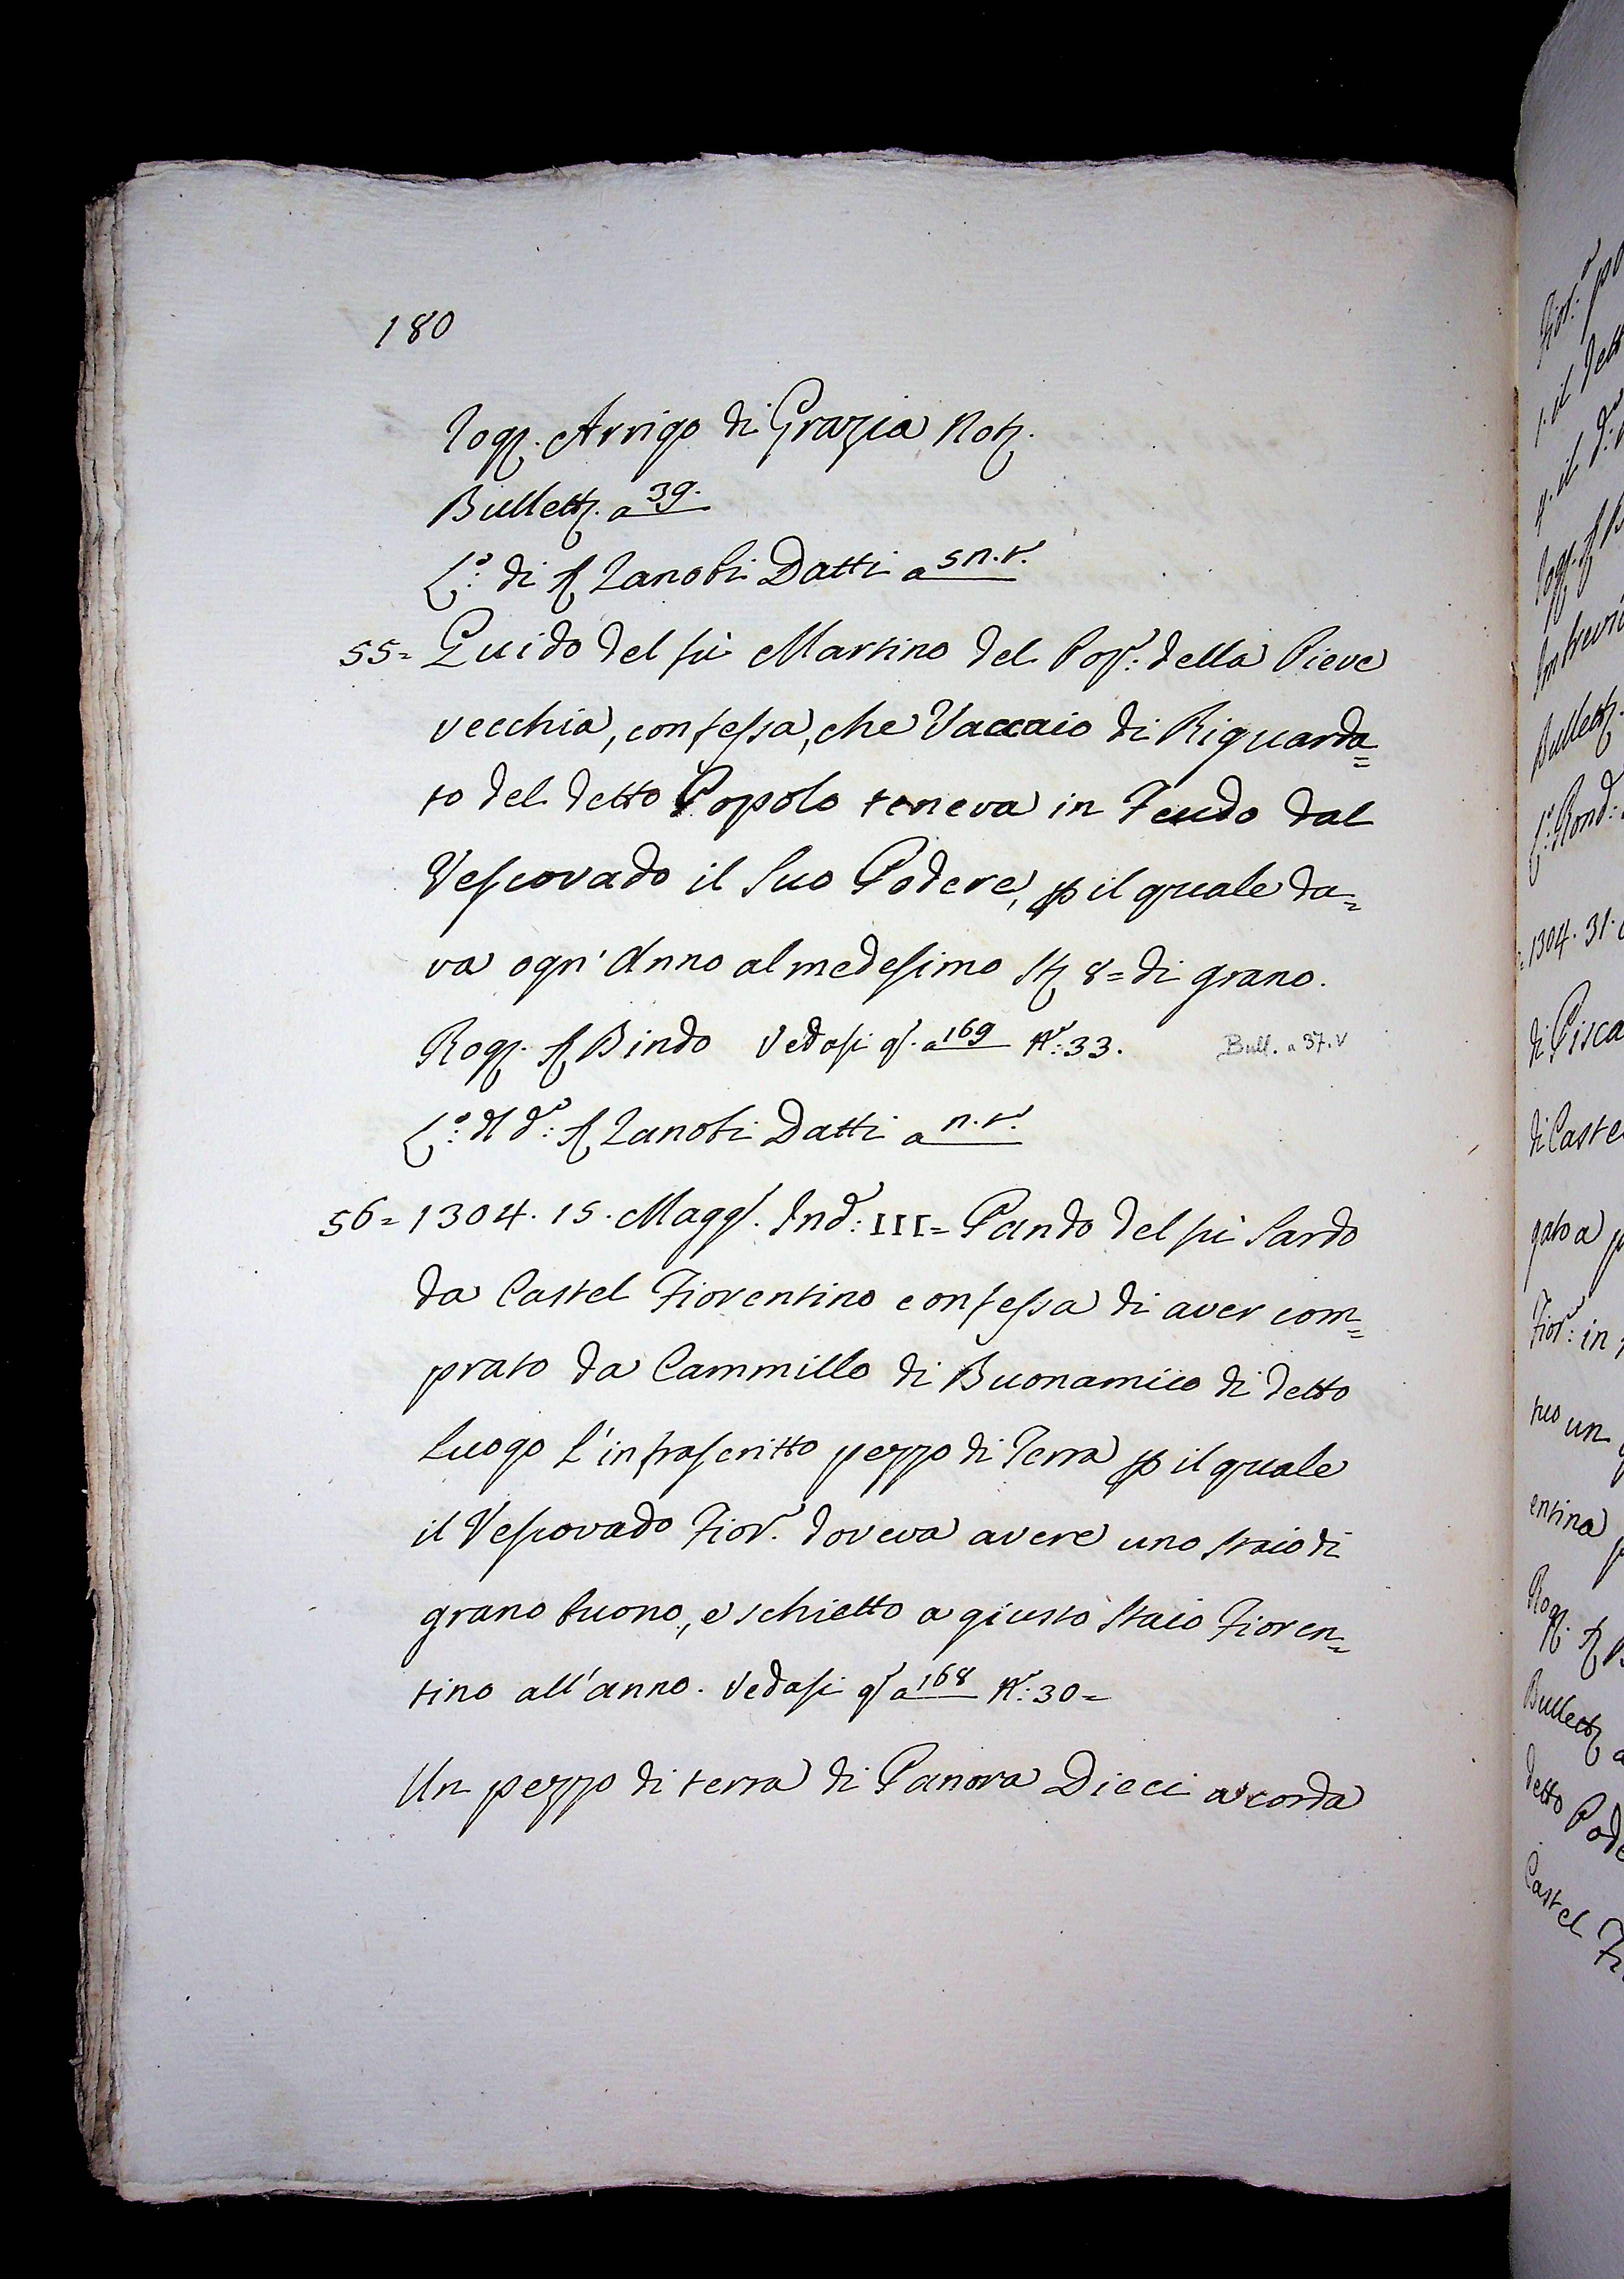 180
Rog. Arrigo di Grazia Not.
Bullett. a 39.
L.º di S. Zanobi Datti a 5 n.r.
55= Guido del fù Martino del Pop.º: della Pieve
vecchia, confessa, che Vaccaio di Riguarda=
to del detto Popolo teneva in Feudo dal
Vescovado il Suo Podere, p il quale da=
va ogn' Anno al medesimo St. 8= di grano.
Rog. S. Bindo Vedasi q. a 169 N.º: 33. Bull. a 37.v
L.º: d d.º: S. Zanobi Datti a n.r.
56= 1304. 15. Magg. Ind.: III= Pando del fù Sardo
da Castel Fiorentino confessa di aver com=
prato da Cammillo di Buonamico di detto
Luogo l'infrascritto pezzo di Terra p il quale
il Vescovado Fior. doveva avere uno staio di
grano buono, e schietto a giusto Staio Fioren=
tino all'anno. Vedasi q. a 168 N.º: 30=
Un pezzo di terra di Panora Dieci a corda
Fior:
1. il dett
4. il d.:
Rog.
Bullett.
L.º: Rond:
=1304. 31.
di Pisca
di Caste
gato a
Fior: in
un
entina
Rog. S.
Bullett a
detto Pode
Castel Fi